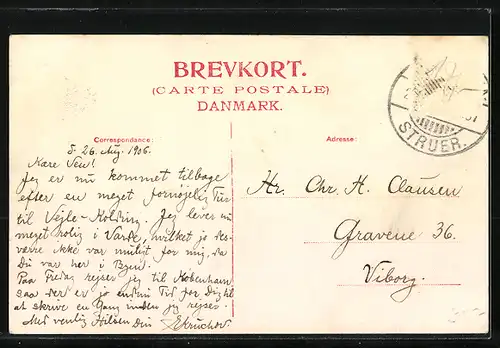 BREVKORT.
(CARTE POSTALE)
DANMARK.
STRUER.
Correspondance:
Adresse:
S. 26. Aug. 1906.
Kære Ven!
Jeg er nu kommet tilbage
efter en meget fornøjelig Tur
til Vejle-Kolding. Jeg lever nu
meget rolig i Varde, hvilket jo des-
værre ikke var muligt for mig, da
Du var her i Byen.
Paa Fredag rejser jeg til København
saa der er jo endnu Tid for Dig til
at skrive en Gang inden jeg rejser.
Med venlig Hilsen Din
Hr. Chr. H. Clausen
Gravene 36.
Viborg.